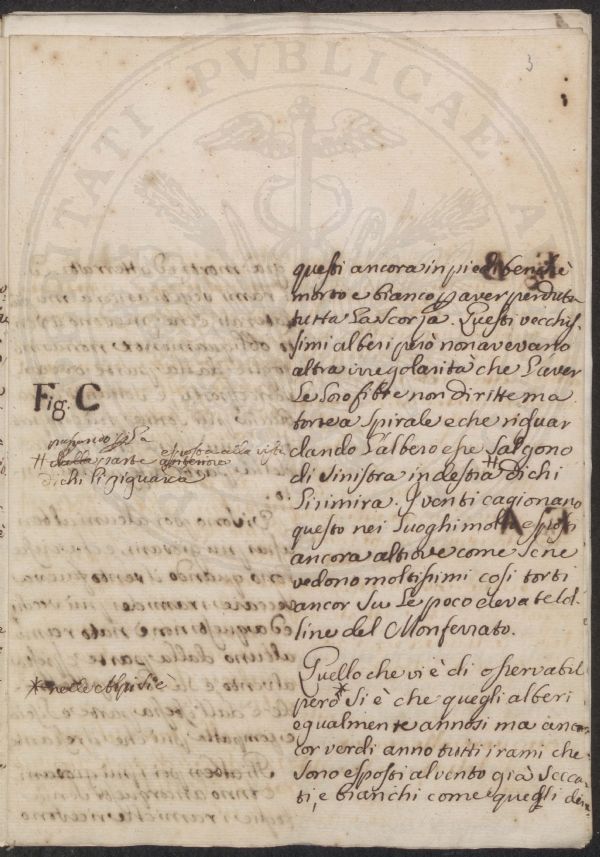 3
questi ancora in piedi benchè
morto e bianco per aver perduta
tutta la scorza. Questi vecchis-
simi alberi però non avevano
altra irregolarità che l'aver
le loro fibre non diritte ma
torte a spirale e che riguar
dando l'albero esse salgono
di sinistra in destra # di chi
li rimira. I venti cagionano
questo nei luoghi molto esposti
ancora altrove come se ne
vedono moltissimi così torti
ancor su le poco elevate col-
line del Monferrato.
Quello che vi è di osservabil
però * si è che quegli alberi
egualmente annosi ma anco-
cor verdi anno tutti i rami che
sono esposti al vento già secca-
ti, e bianchi come quegli
Fig. C
passando per la
# dalla parte esposta alla vista
di chi li riguarda
* nelle Alpi si è
PVBLICAE